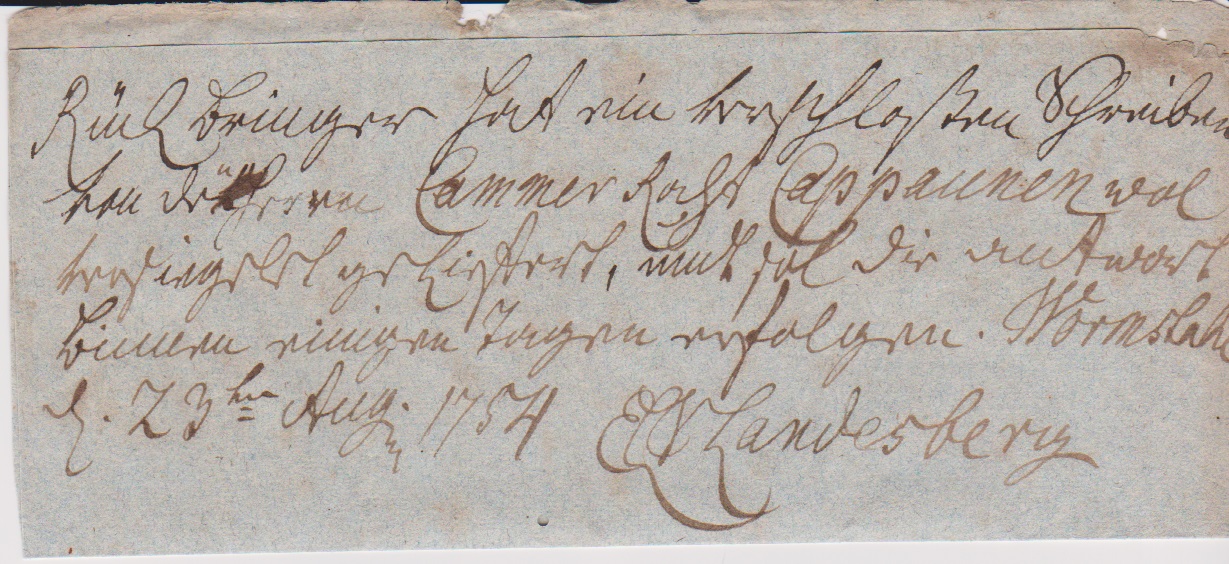 Rück bringer hat ein verschloßen Schreiben
von de Herrn Cammer Raht Cappaunen wol
versiegelt geliefert, undt sol die antwort
binnen einigen Tagen erfolgen. Wormsthal
d. 23ten Aug. 1754 Landesberg